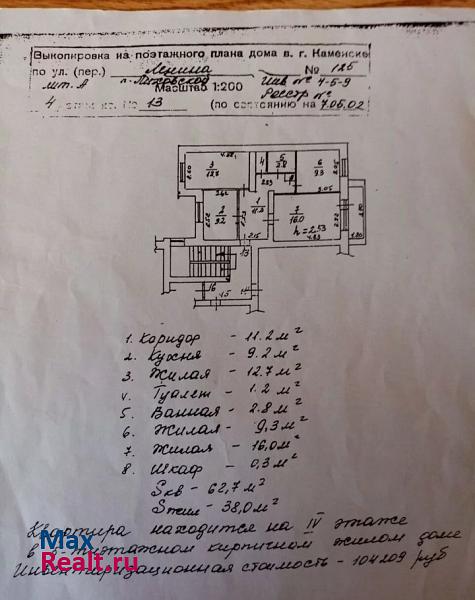 Выкопировка из поэтажного плана дома в. г. Каменске
по ул. (пер.) Ленина № 125
лит. А п. Лиховской Масштаб 1:200 Инв № 4-5-9
Реестр №
4 этаж кв. № 13 (по состоянию на 7.05.02)
1. Коридор - 11.2 м²
2. Кухня - 9.2 м²
3. Жилая - 12.7 м²
4. Туалет - 1.2 м²
5. Ванная - 2.8 м²
6. Жилая - 9,3 м²
7. Жилая - 16,0 м²
8. Шкаф - 0,3 м²
Sкв - 62,7 м²
Sжил - 38,0 м²
Квартира находится на IV этаже
в кирпичном жилом доме
Инвентаризационная стоимость - 104209 руб
Max
Realt.ru
3
12.7
4
5
2.8
6
9.3
3.05
2
9.2
1
11.2
7
16.0
h = 2.53
4.83
13
16
15